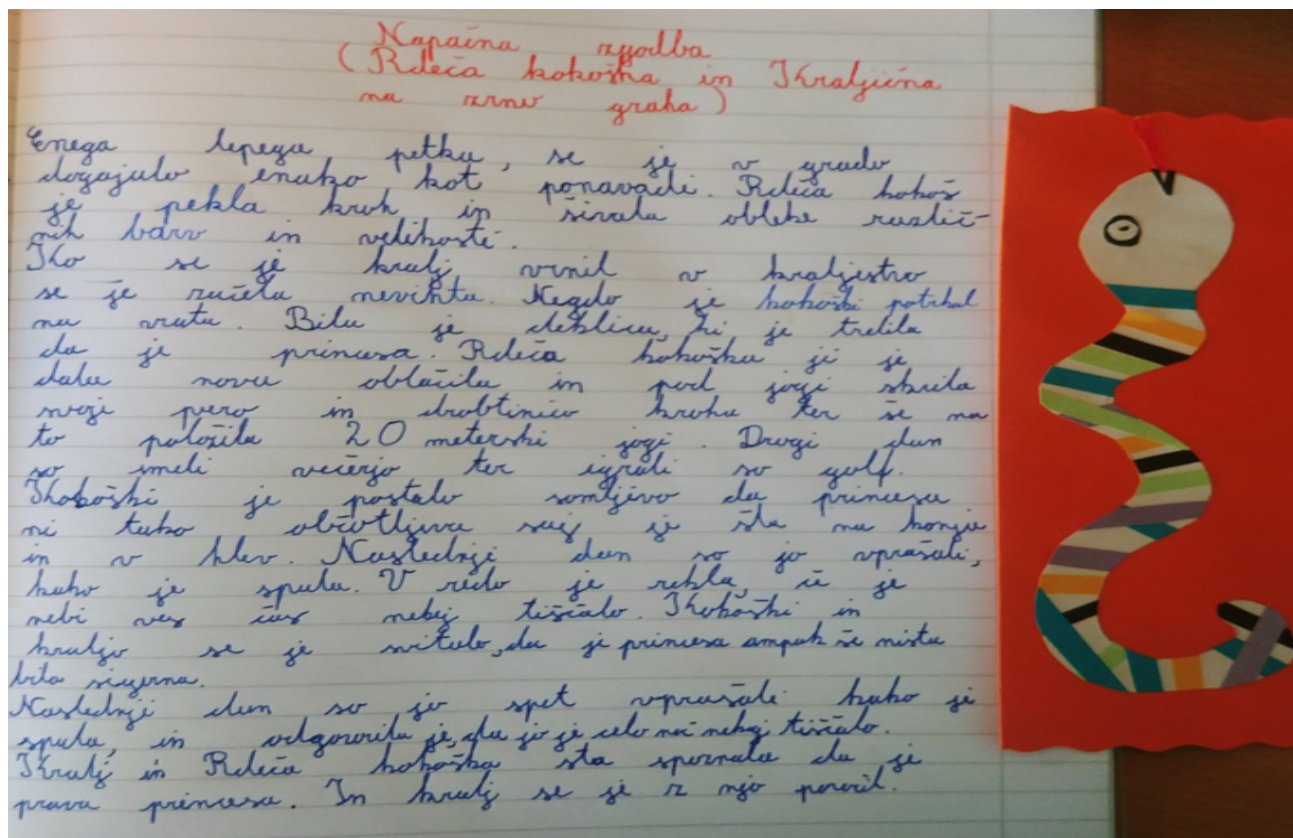 Napačna zgodba
(Rdeča kokoška in Kraljična
na zrnu graha)
Enega lepega petka, se je v gradu
dogajalo enako kot ponavadi. Rdeča kokoš
je pekla kruh in šivala obleke različ-
nih barv in velikosti.
Ko se je kralj vrnil v kraljestvo
se je začela nevihta. Negdo je kokoški potrkal
na vrata. Bila je deklica, ki je trdila
da je princesa. Rdeča kokoška ji je
dala nova oblačila in pod jogi skrila
svoje pero in drobtinico kruha ter še na
to položila 20 meterski jogi. Drugi dan
so imeli večerjo ter igrali so golf.
Kokoški je postalo sumljivo da princesa
ni tako občutljiva saj je šla na konje
in v hlev. Naslednji dan so jo vprašali,
kako je spala. V redu je rekla, če je
nebi ves čas nekej tiščalo. Kokoški in
kralju se je svitalo, da je princesa ampak še nista
bila sigurna.
Naslednji dan so jo spet vprašali kako je
spala, in odgovorila je, da jo je celo noč nekej tiščalo.
Kralj in Rdeča kokoška sta spoznala da je
prava princesa. In kralj se je z njo poročil.